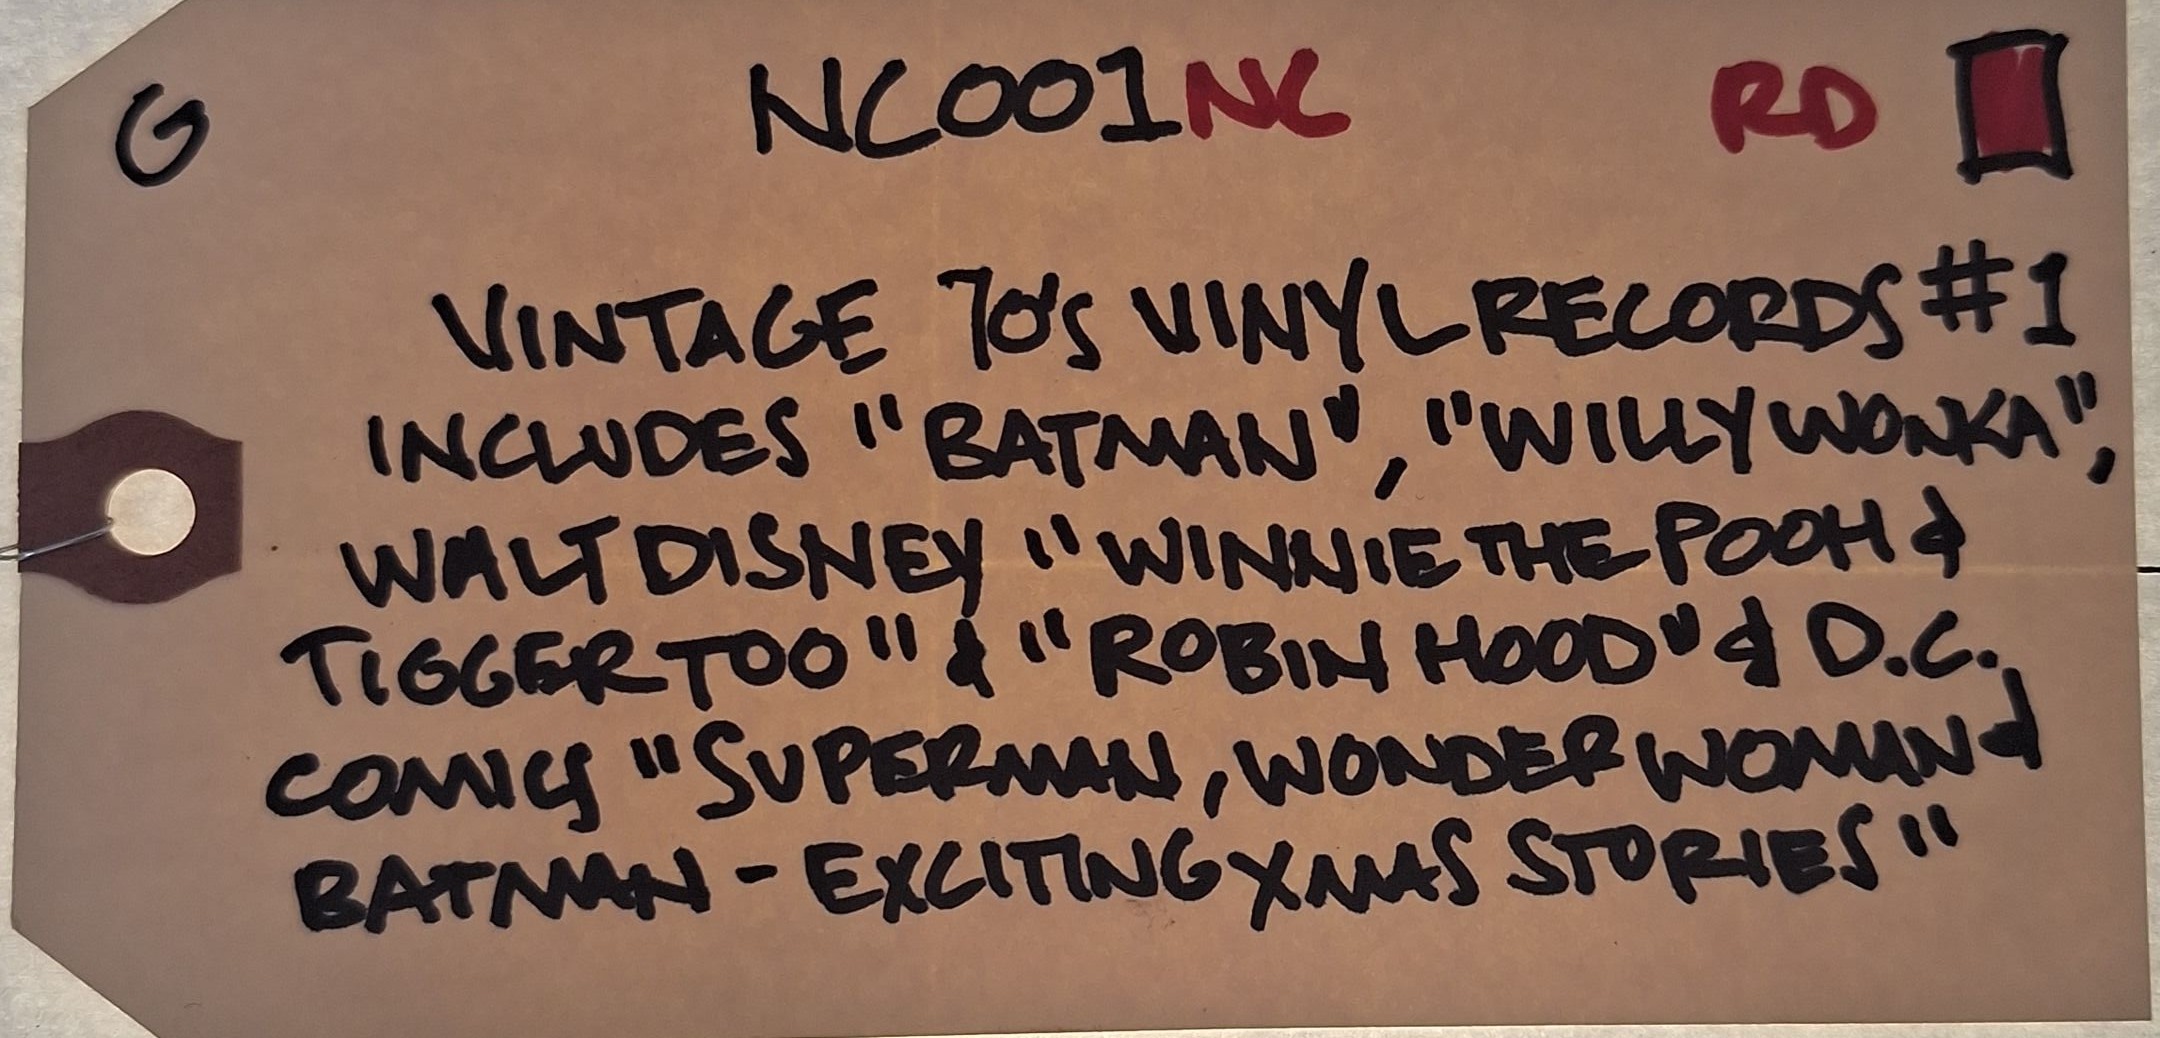 G NC001NC RD
VINTAGE 70's VINYL RECORDS #1
INCLUDES "BATMAN", "WILLY WONKA",
WALT DISNEY "WINNIE THE POOH &
TIGGER TOO" & "ROBIN HOOD" & D.C.
COMICS "SUPERMAN, WONDER WOMAN &
BATMAN - EXCITING XMAS STORIES"